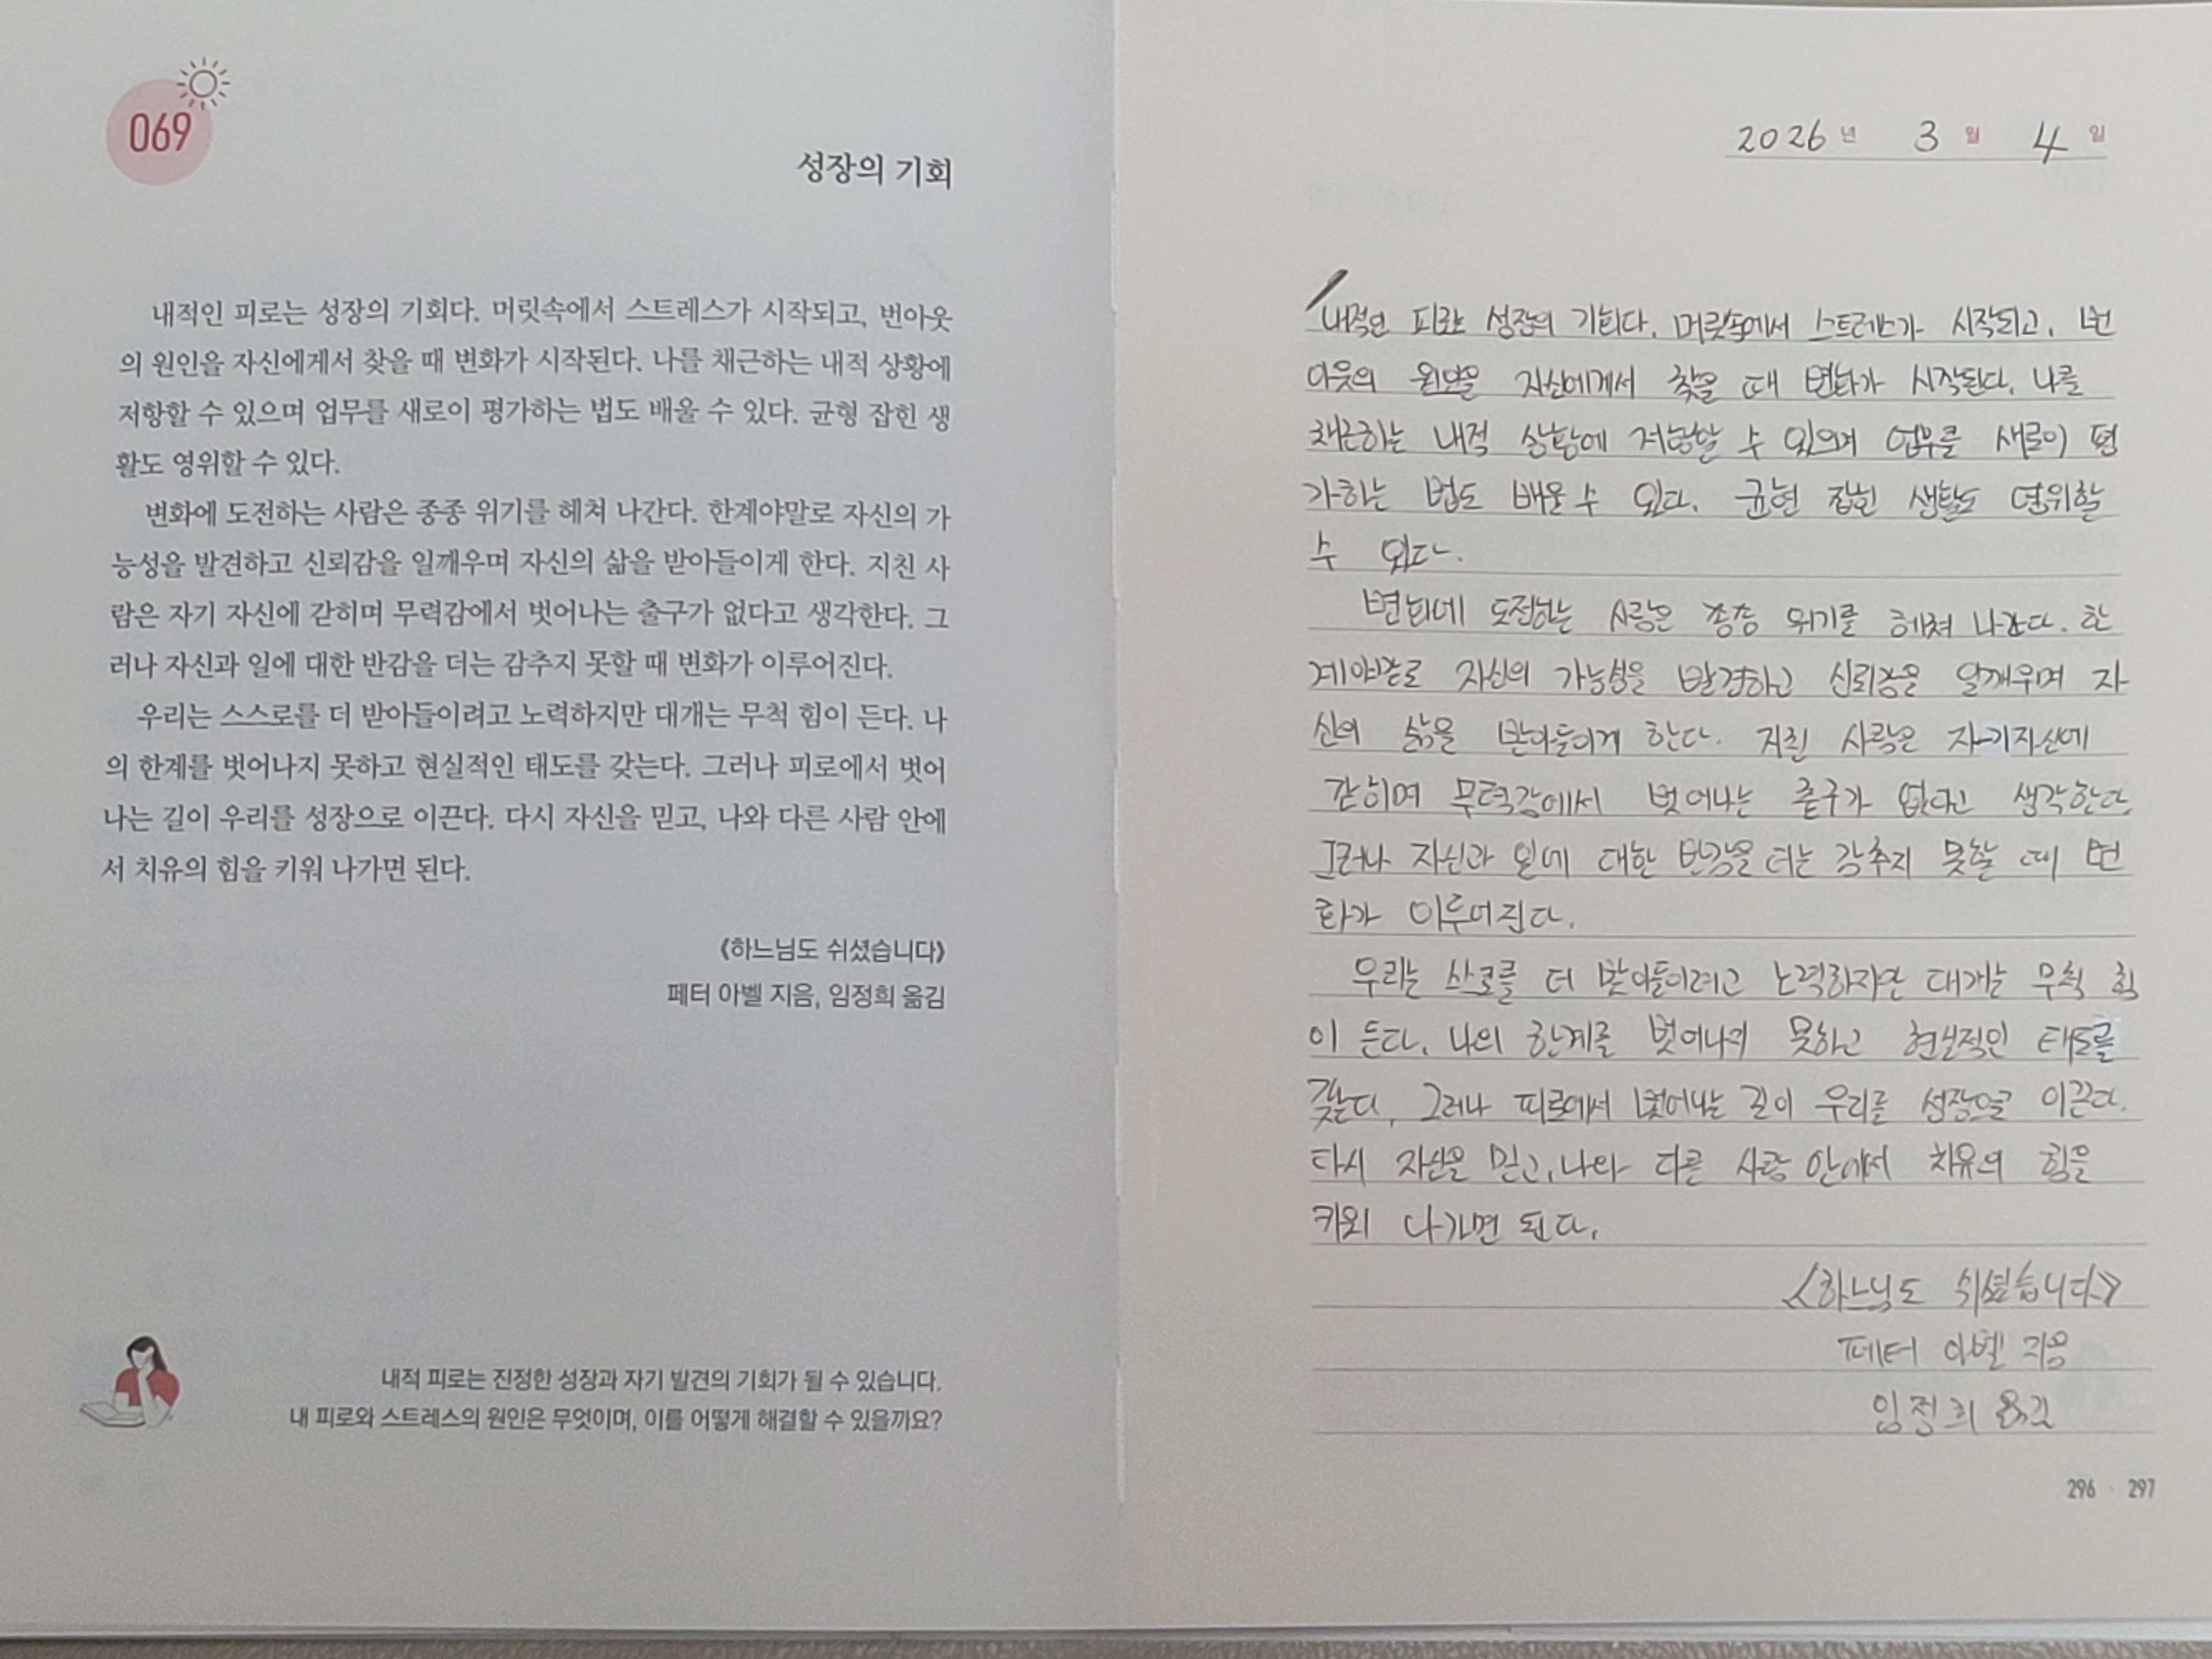 069
성장의 기회
내적인 피로는 성장의 기회다. 머릿속에서 스트레스가 시작되고, 번아웃
의 원인을 자신에게서 찾을 때 변화가 시작된다. 나를 채근하는 내적 상황에
저항할 수 있으며 업무를 새로이 평가하는 법도 배울 수 있다. 균형 잡힌 생
활도 영위할 수 있다.
변화에 도전하는 사람은 종종 위기를 헤쳐 나간다. 한계야말로 자신의 가
능성을 발견하고 신뢰감을 일깨우며 자신의 삶을 받아들이게 한다. 지친 사
람은 자기 자신에 갇히며 무력감에서 벗어나는 출구가 없다고 생각한다. 그
러나 자신과 일에 대한 반감을 더는 감추지 못할 때 변화가 이루어진다.
우리는 스스로를 더 받아들이려고 노력하지만 대개는 무척 힘이 든다. 나
의 한계를 벗어나지 못하고 현실적인 태도를 갖는다. 그러나 피로에서 벗어
나는 길이 우리를 성장으로 이끈다. 다시 자신을 믿고, 나와 다른 사람 안에
서 치유의 힘을 키워 나가면 된다.
《하느님도 쉬셨습니다》
페터 아벨 지음, 임정희 옮김
내적 피로는 진정한 성장과 자기 발견의 기회가 될 수 있습니다.
내 피로와 스트레스의 원인은 무엇이며, 이를 어떻게 해결할 수 있을까요?
2026년 3월 4일
내적인 피로는 성장의 기회다. 머릿속에서 스트레스가 시작되고, 번
아웃의 원인을 자신에게서 찾을 때 변화가 시작된다. 나를
채근하는 내적 상황에 저항할 수 있으며 업무를 새로이 평
가하는 법도 배울 수 있다. 균형 잡힌 생활도 영위할
수 있다.
변화에 도전하는 사람은 종종 위기를 헤쳐 나간다. 한
계야말로 자신의 가능성을 발견하고 신뢰감을 일깨우며 자
신의 삶을 받아들이게 한다. 지친 사람은 자기자신에
갇히며 무력감에서 벗어나는 출구가 없다고 생각한다.
그러나 자신과 일에 대한 반감을 더는 감추지 못할 때 변
화가 이루어진다.
우리는 스스로를 더 받아들이려고 노력하지만 대개는 무척 힘
이 든다. 나의 한계를 벗어나지 못하고 현실적인 태도를
갖는다. 그러나 피로에서 벗어나는 길이 우리를 성장으로 이끈다.
다시 자신을 믿고, 나와 다른 사람 안에서 치유의 힘을
키워 나가면 된다.
<하느님도 쉬셨습니다>
페터 아벨 지음
임정희 옮김
296 · 297